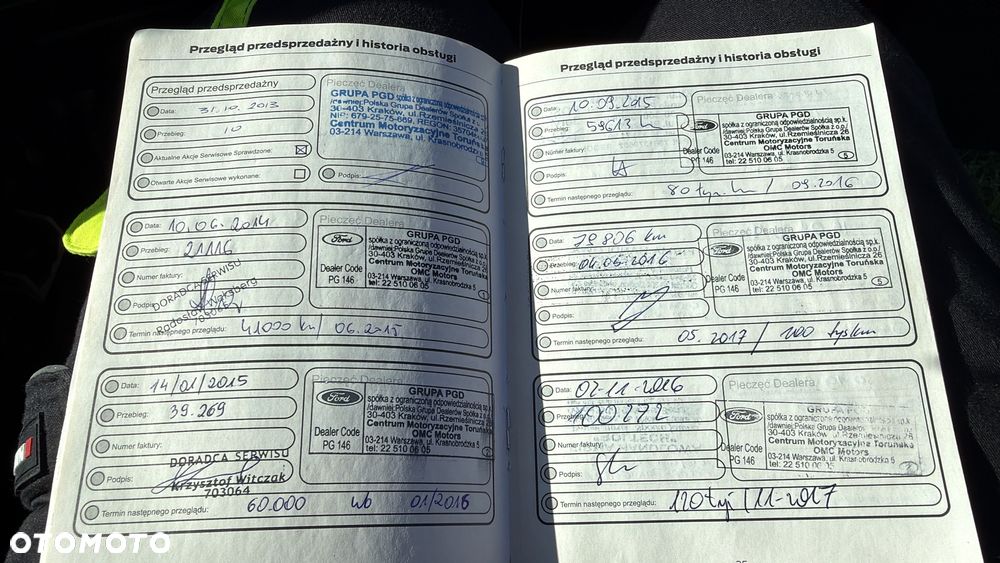 Przegląd przedsprzedażny i historia obsługi
Przegląd przedsprzedażny
Data: 31.10.2013
Przebieg: 10
Aktualne Akcje Serwisowe Sprawdzone:
Otwarte Akcje Serwisowe wykonane:
Pieczęć Dealera
GRUPA PGD spółka z ograniczoną odpowiedzialnością
/dawniej:Polska Grupa Dealerów Spółka z o.o./
30-403 Kraków, ul.Rzemieślnicza 26
NIP: 679-25-75-669, REGON:
Centrum Motoryzacyjne Toruńska
03-214 Warszawa, ul. Krasnobrodzka 5
Podpis:
Data: 10.06.2014
Przebieg: 21116
Numer faktury:
DORADCA SERWISU
Podpis:
Termin następnego przeglądu: 41000 km / 06.2015
Pieczęć Dealera
GRUPA PGD
Ford
spółka z ograniczoną odpowiedzialnością sp.k.
/dawniej:Polska Grupa Dealerów Spółka z o.o./
30-403 Kraków, ul.Rzemieślnicza 26
Centrum Motoryzacyjne Toruńska
OMC Motors
Dealer Code
PG 146
03-214 Warszawa, ul. Krasnobrodzka 5
tel: 22 510 06 05
Data: 14/01/2015
Przebieg: 39.269
Numer faktury:
DORADCA SERWISU
Podpis:
Krzysztof Witczak
703064
Termin następnego przeglądu: 60.000 lub 01/2016
Pieczęć Dealera
GRUPA PGD
Ford
spółka z ograniczoną odpowiedzialnością sp.k.
/dawniej:Polska Grupa Dealerów Spółka z o.o./
30-403 Kraków, ul.Rzemieślnicza 26
Centrum Motoryzacyjne Toruńska
OMC Motors
Dealer Code
PG 146
03-214 Warszawa, ul. Krasnobrodzka 5
tel: 22 510 06 05
Przegląd przedsprzedażny i historia obsługi
Data: 10.09.2015
Przebieg: 59613 km
Numer faktury:
Podpis:
Termin następnego przeglądu: 80 tys. km / 09.2016
Pieczęć Dealera
GRUPA PGD
Ford
spółka z ograniczoną odpowiedzialnością sp.k.
/dawniej:Polska Grupa Dealerów Spółka z o.o./
30-403 Kraków, ul.Rzemieślnicza 26
Centrum Motoryzacyjne Toruńska
OMC Motors
Dealer Code
PG 146
03-214 Warszawa, ul. Krasnobrodzka 5
tel: 22 510 06 05
Data: 78806 km
Przebieg: 04.06.2016
Numer faktury:
Podpis:
Termin następnego przeglądu: 05.2017 / 100 tys km
Pieczęć Dealera
GRUPA PGD
Ford
spółka z ograniczoną odpowiedzialnością sp.k.
/dawniej:Polska Grupa Dealerów Spółka z o.o./
30-403 Kraków, ul.Rzemieślnicza 26
Centrum Motoryzacyjne Toruńska
OMC Motors
Dealer Code
PG 146
03-214 Warszawa, ul. Krasnobrodzka 5
tel: 22 510 06 05
Data: 02-11-2016
Przebieg: 100272
Numer faktury:
Podpis:
Termin następnego przeglądu: 120 tyś / 11-2017
Pieczęć Dealera
GRUPA PGD
Ford
spółka z ograniczoną odpowiedzialnością sp.k.
/dawniej:Polska Grupa Dealerów Spółka z o.o./
30-403 Kraków, ul.Rzemieślnicza 26
Centrum Motoryzacyjne Toruńska
OMC Motors
Dealer Code
PG 146
03-214 Warszawa, ul. Krasnobrodzka 5
tel: 22 510 06 05
OTOMOTO